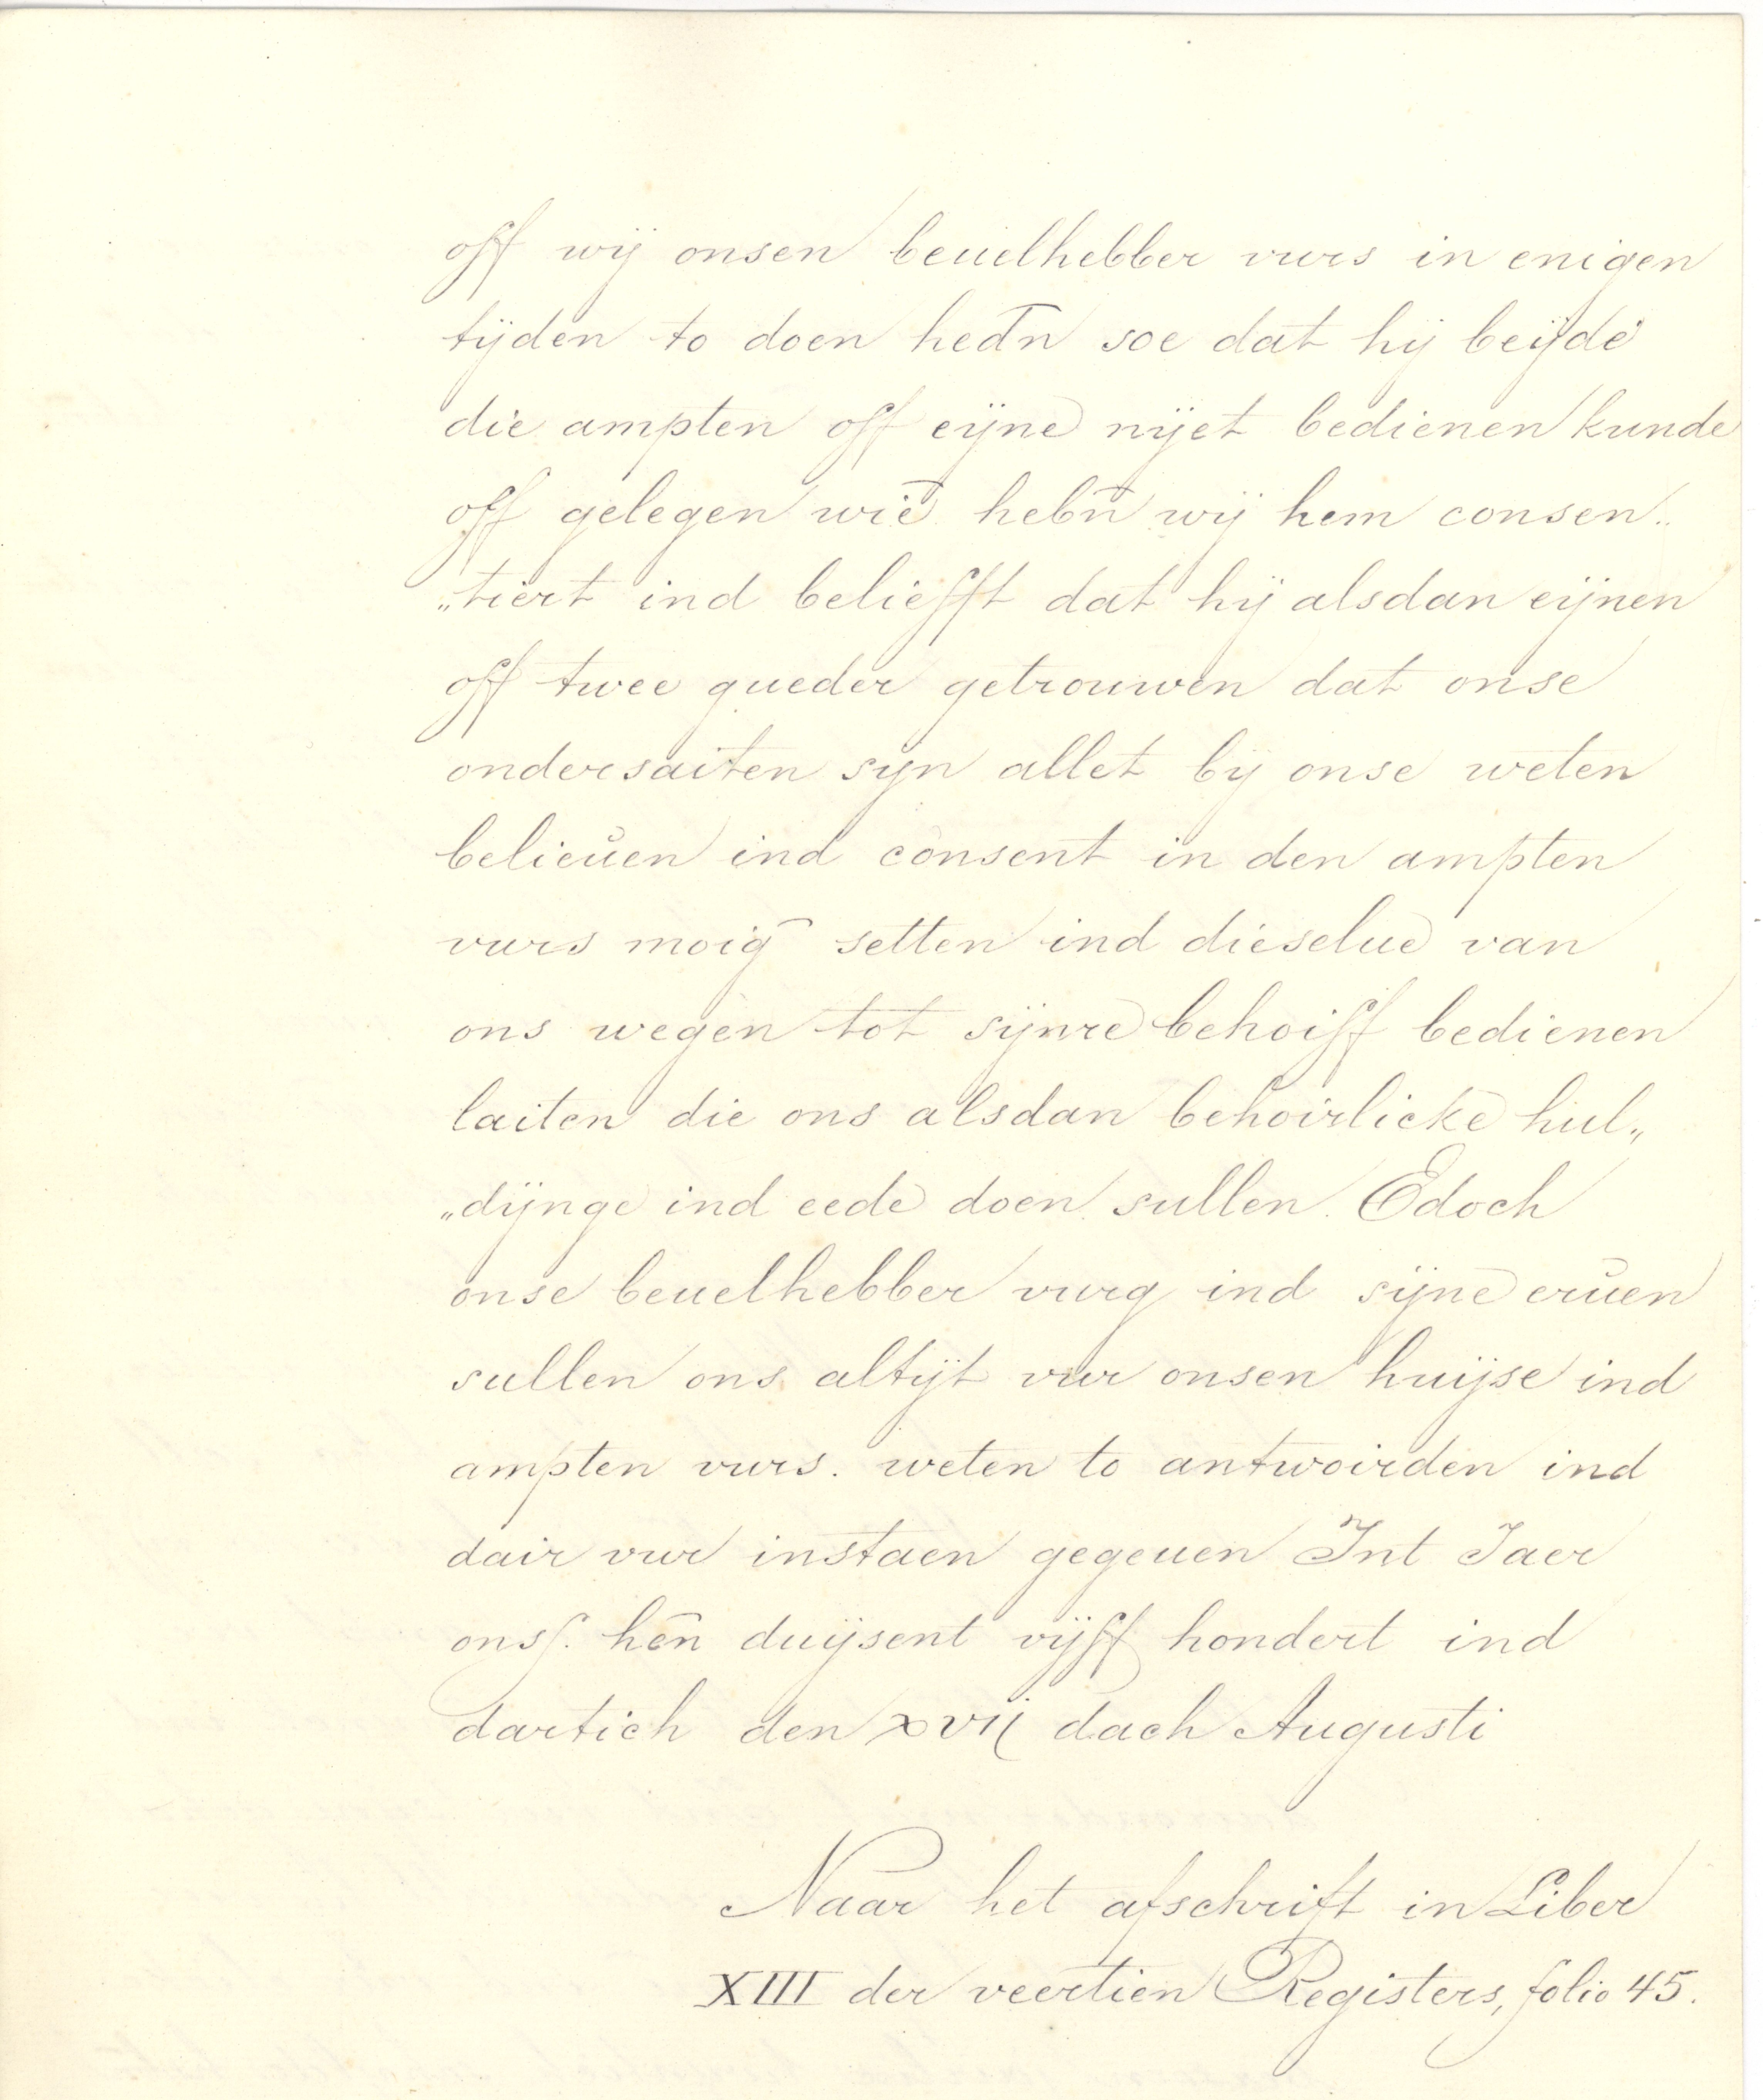 off wij onsen beuelhebber vurs in enigen
tijden to doen hedn̄ soe dat hij beijde
die ampten off eijne nijet bedienen kunde
off gelegen wie̅ hebn̄ wij hem consen„
„tiert ind beliefft dat hij alsdan eijnen
off twee gueder getrouwen dat onse
ondersaiten syn allet bij onse weten
belieŭen ind consent in den ampten
vurs moig̅ setten ind dieselue van
ons wegen tot sijnre behoiff bedienen
laiten die ons alsdan behoirlicke hul„
„dijnge ind eede doen sullen. Edoch
onse beuelhebber vurg ind sijne erŭen
sullen ons altijt vur onsen huijse ind
ampten vurs. weten to antwoirden ind
dair vur instaen gegeuen Int Jaer
onsſ. hēn duijsent vijff hondert ind
dartich den xvij dach Augusti
Naar het afschrift in Liber
XIII der veertien Registers, folio 45.